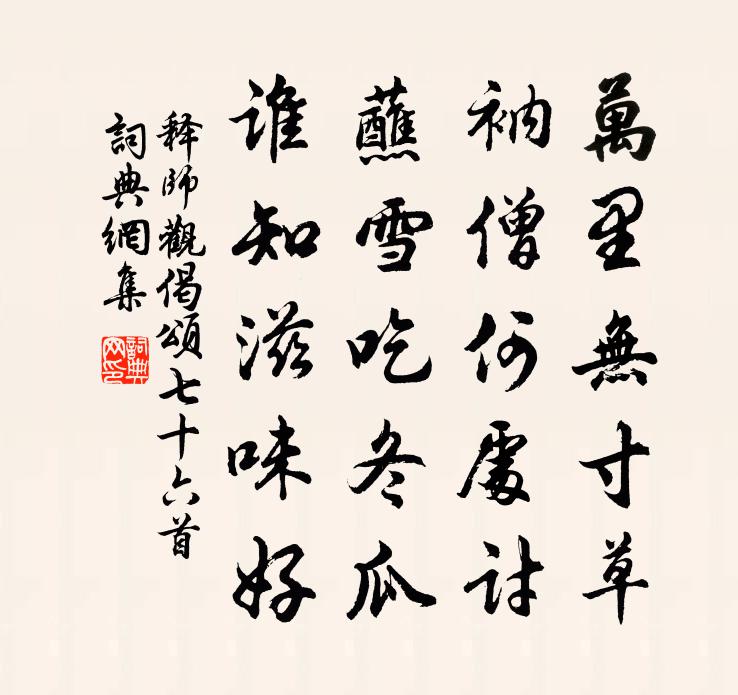 萬里無寸草
衲僧何處討
蘸雪吃冬瓜
誰知滋味好
釋師觀偈頌七十六首
詞典網集
詞典網印